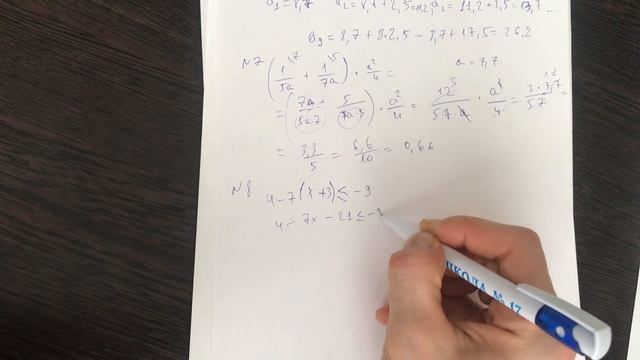 a₁ = 8,7 a₂ = 8,7 + 2,5 = 11,2; a₃ = 11,2 + 2,5 = 13,7 ...
a₉ = 8,7 + 8·2,5 = 8,7 + 17,5 = 26,2
№7 (1/5a \7 + 1/7a \5) · a²/4 = a = 7,7
= (7a+/5a·7 5/7a·5) · a²/4 = 12 3/5·7·a · a²/4 = 3·7,7 1,1/5·7 =
= 3,3/5 = 6,6/10 = 0,66
№8 4 - 7(x+3) ≤ -9
4 - 7x - 21 ≤ -9
ШКОЛА № 17